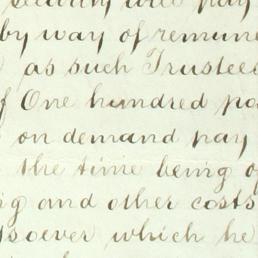 security will pay
by way of remune
as such Trustees
f One hundred po
on demand pay
the time being of
ng and other costs
tsoever which he